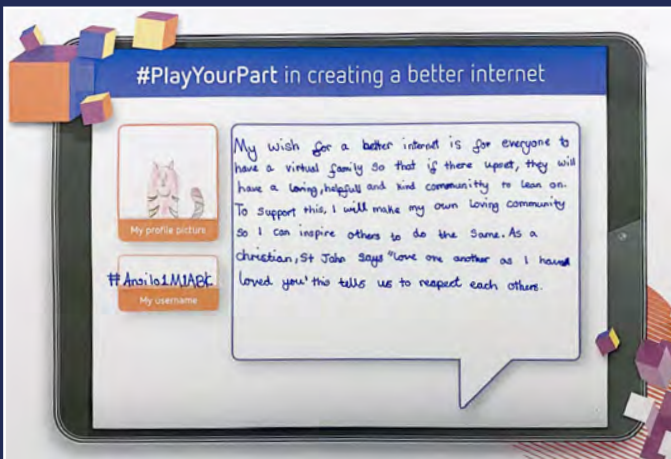 #PlayYourPart in creating a better internet
My wish for a better internet is for everyone to
have a virtual family so that if there upset, they will
have a loving, helpfull and kind communitty to lean on.
To support this, I will make my own loving community
so I can inspire others to do the same. As a
christian, St John says "love one another as I have
loved you" this tells us to respect each others.
My profile picture
My username